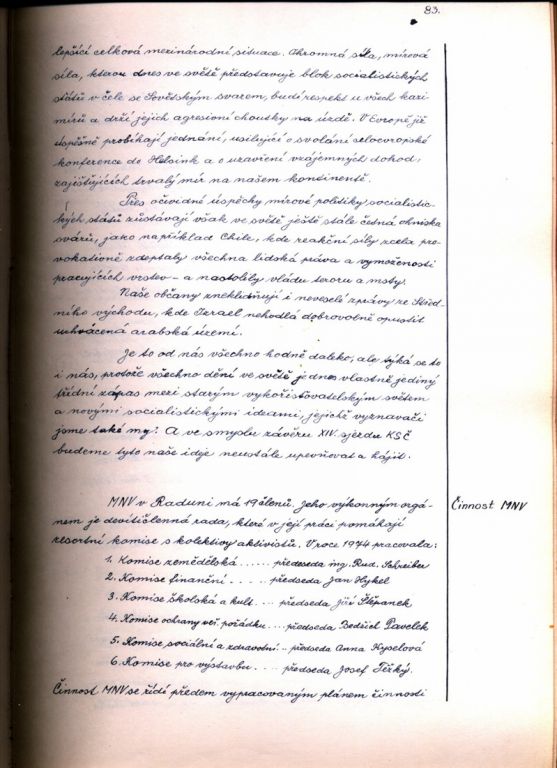 83.
lepšící celková mezinárodní situace. Ohromná síla, mírová
síla, kterou dnes ve světě představuje blok socialistických
států v čele se Sovětským svazem, budí respekt u všech kazi-
mírů a drží jejich agresioní choutky na uzdě. V Evropě již
úspěšně probíhají jednání, usilující o svolání celoevropské
konference do Helsink a o uzavření vzájemných dohod,
zajišťujících trvalý mír na našem kontinentě.
Přes očividné úspěchy mírové politiky socialistic-
kých států zůstávají však ve světě ještě stále četná ohniska
svárů, jako například Chile, kde reakční síly zcela pro-
vokativně zdeptaly všechna lidská práva a vymoženosti
pracujících vrstev - a nastolily vládu teroru a msty.
Naše občany zneklidňují i neveselé zprávy ze Střed-
ního východu, kde Izrael nehodlá dobrovolně opustit
uchvácená arabská území.
Je to od nás všechno hodně daleko, ale týká se to
i nás, protože všechno dění ve světě je dnes vlastně jediný
třídní zápas mezi starým vykořisťovatelským světem
a novými socialistickými ideami, jejichž vyznavači
jsme také my! A ve smyslu závěru XIV. sjezdu KSČ
budeme tyto naše ideje neustále upevňovat a hájit.
MNV v Raduni má 19 členů. Jeho výkonným orgá-
nem je devítičlenná rada, které v její práci pomáhají
resortní komise s kolektivy aktivistů. V roce 1974 pracovala:
Činnost MNV
1. Komise zemědělská ...... předseda ing. Rud. Schreiber
2. Komise finanční ..... předseda Jan Hykel
3. Komise školská a kult. ... předseda Jiří Štěpánek
4. Komise ochrany veř. pořádku ... předseda Bedřich Pavelek
5. Komise sociální a zdravotní .. předseda Anna Kyselová
6. Komise pro výstavbu .... předseda Josef Těžký.
Činnost MNV se řídí předem vypracovaným plánem činnosti